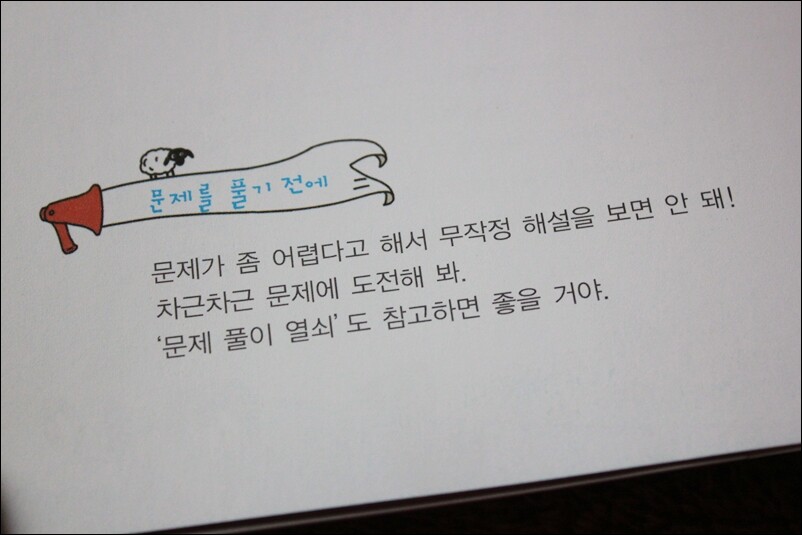 문제를 풀기 전에
문제가 좀 어렵다고 해서 무작정 해설을 보면 안 돼!
차근차근 문제에 도전해 봐.
‘문제 풀이 열쇠’도 참고하면 좋을 거야.